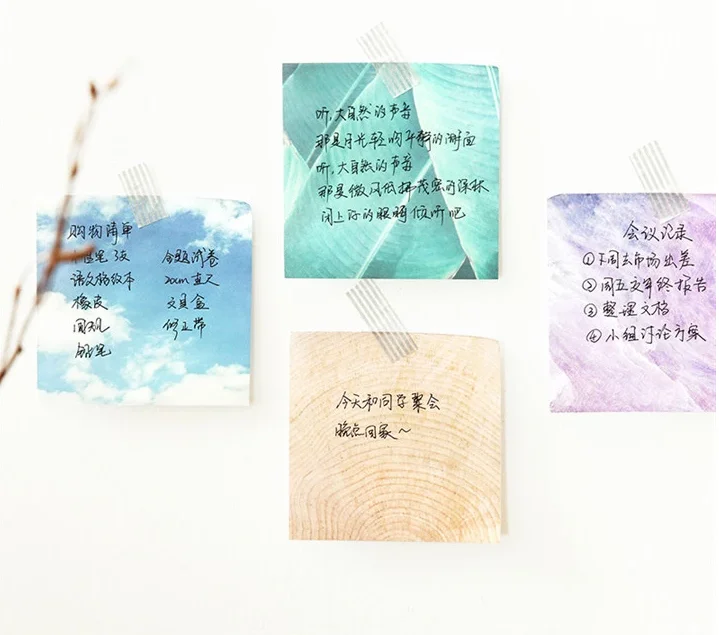 购物清单
语文格纹本
橡皮
圆规
铅笔
命题试卷
20cm直尺
文具盒
修正带
听,大自然的声音
那是月光轻吻平静的湖面
听,大自然的声音
那是微风低拂茂密的深林
闭上你的眼睛倾听吧
今天和同学聚会
晚点回家~
会议记录
①下周去市场出差
②周五交年终报告
③整理文档
④小组讨论方案